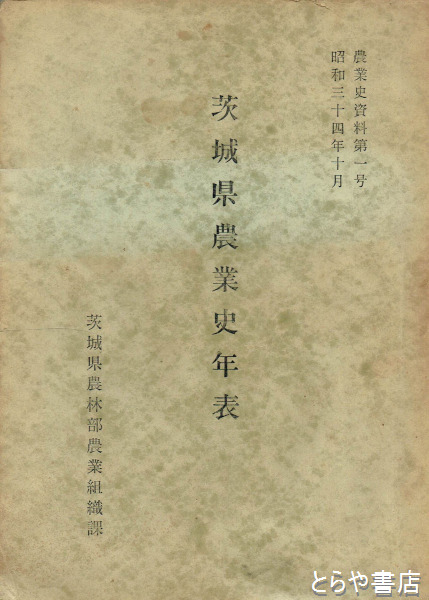 農業史資料第一号
昭和三十四年十月
茨城県農業史年表
茨城県農林部農業組織課
とらや書店